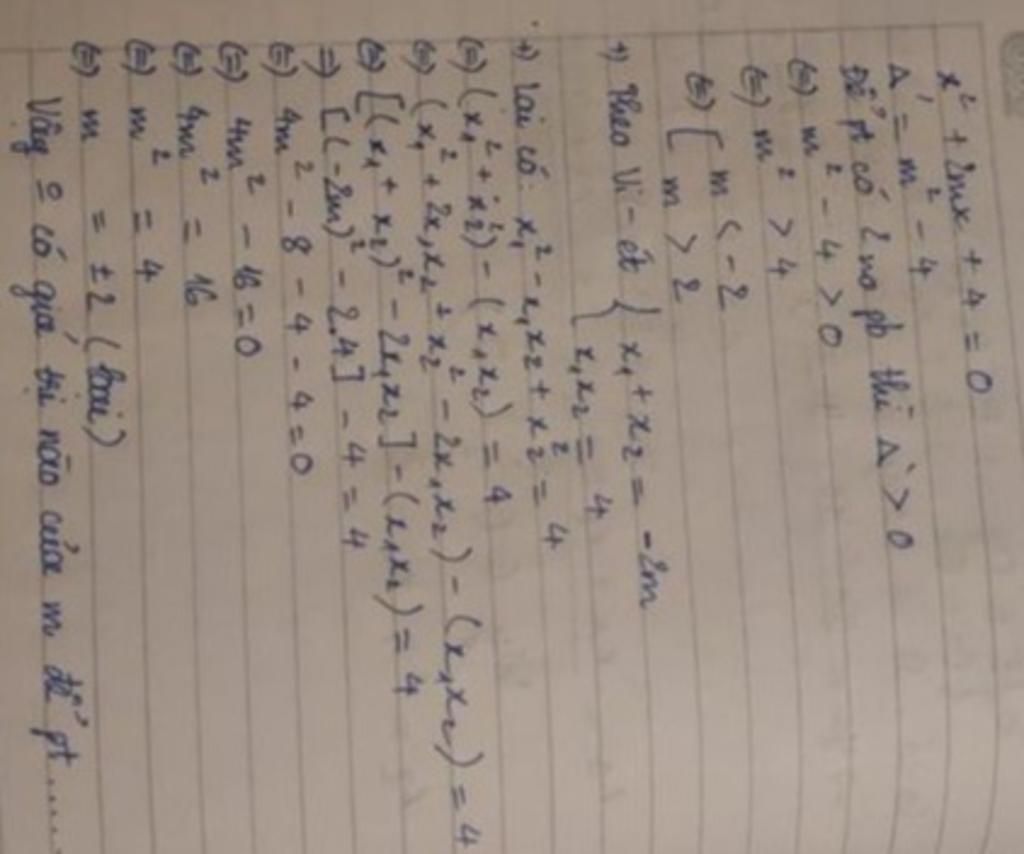 x² + 2mx + 4 = 0
Δ' = m² - 4
Để pt có 2 no pb thì Δ' > 0
(=) m² - 4 > 0
(=) m² > 4
(=) [ m < -2
m > 2
+) Theo Vi-ét { x₁ + x₂ = -2m
x₁x₂ = 4
+) Lại có: x₁² - x₁x₂ + x₂² = 4
(=) (x₁² + x₂²) - (x₁x₂) = 4
(=) (x₁² + 2x₁x₂ + x₂² - 2x₁x₂) - (x₁x₂) = 4
(=) [(x₁ + x₂)² - 2x₁x₂] - (x₁x₂) = 4
=) [(-2m)² - 2.4] - 4 = 4
(=) 4m² - 8 - 4 - 4 = 0
(=) 4m² - 16 = 0
(=) 4m² = 16
(=) m² = 4
(=) m = ±2 (loại)
Vậy o có giá trị nào của m để pt ......